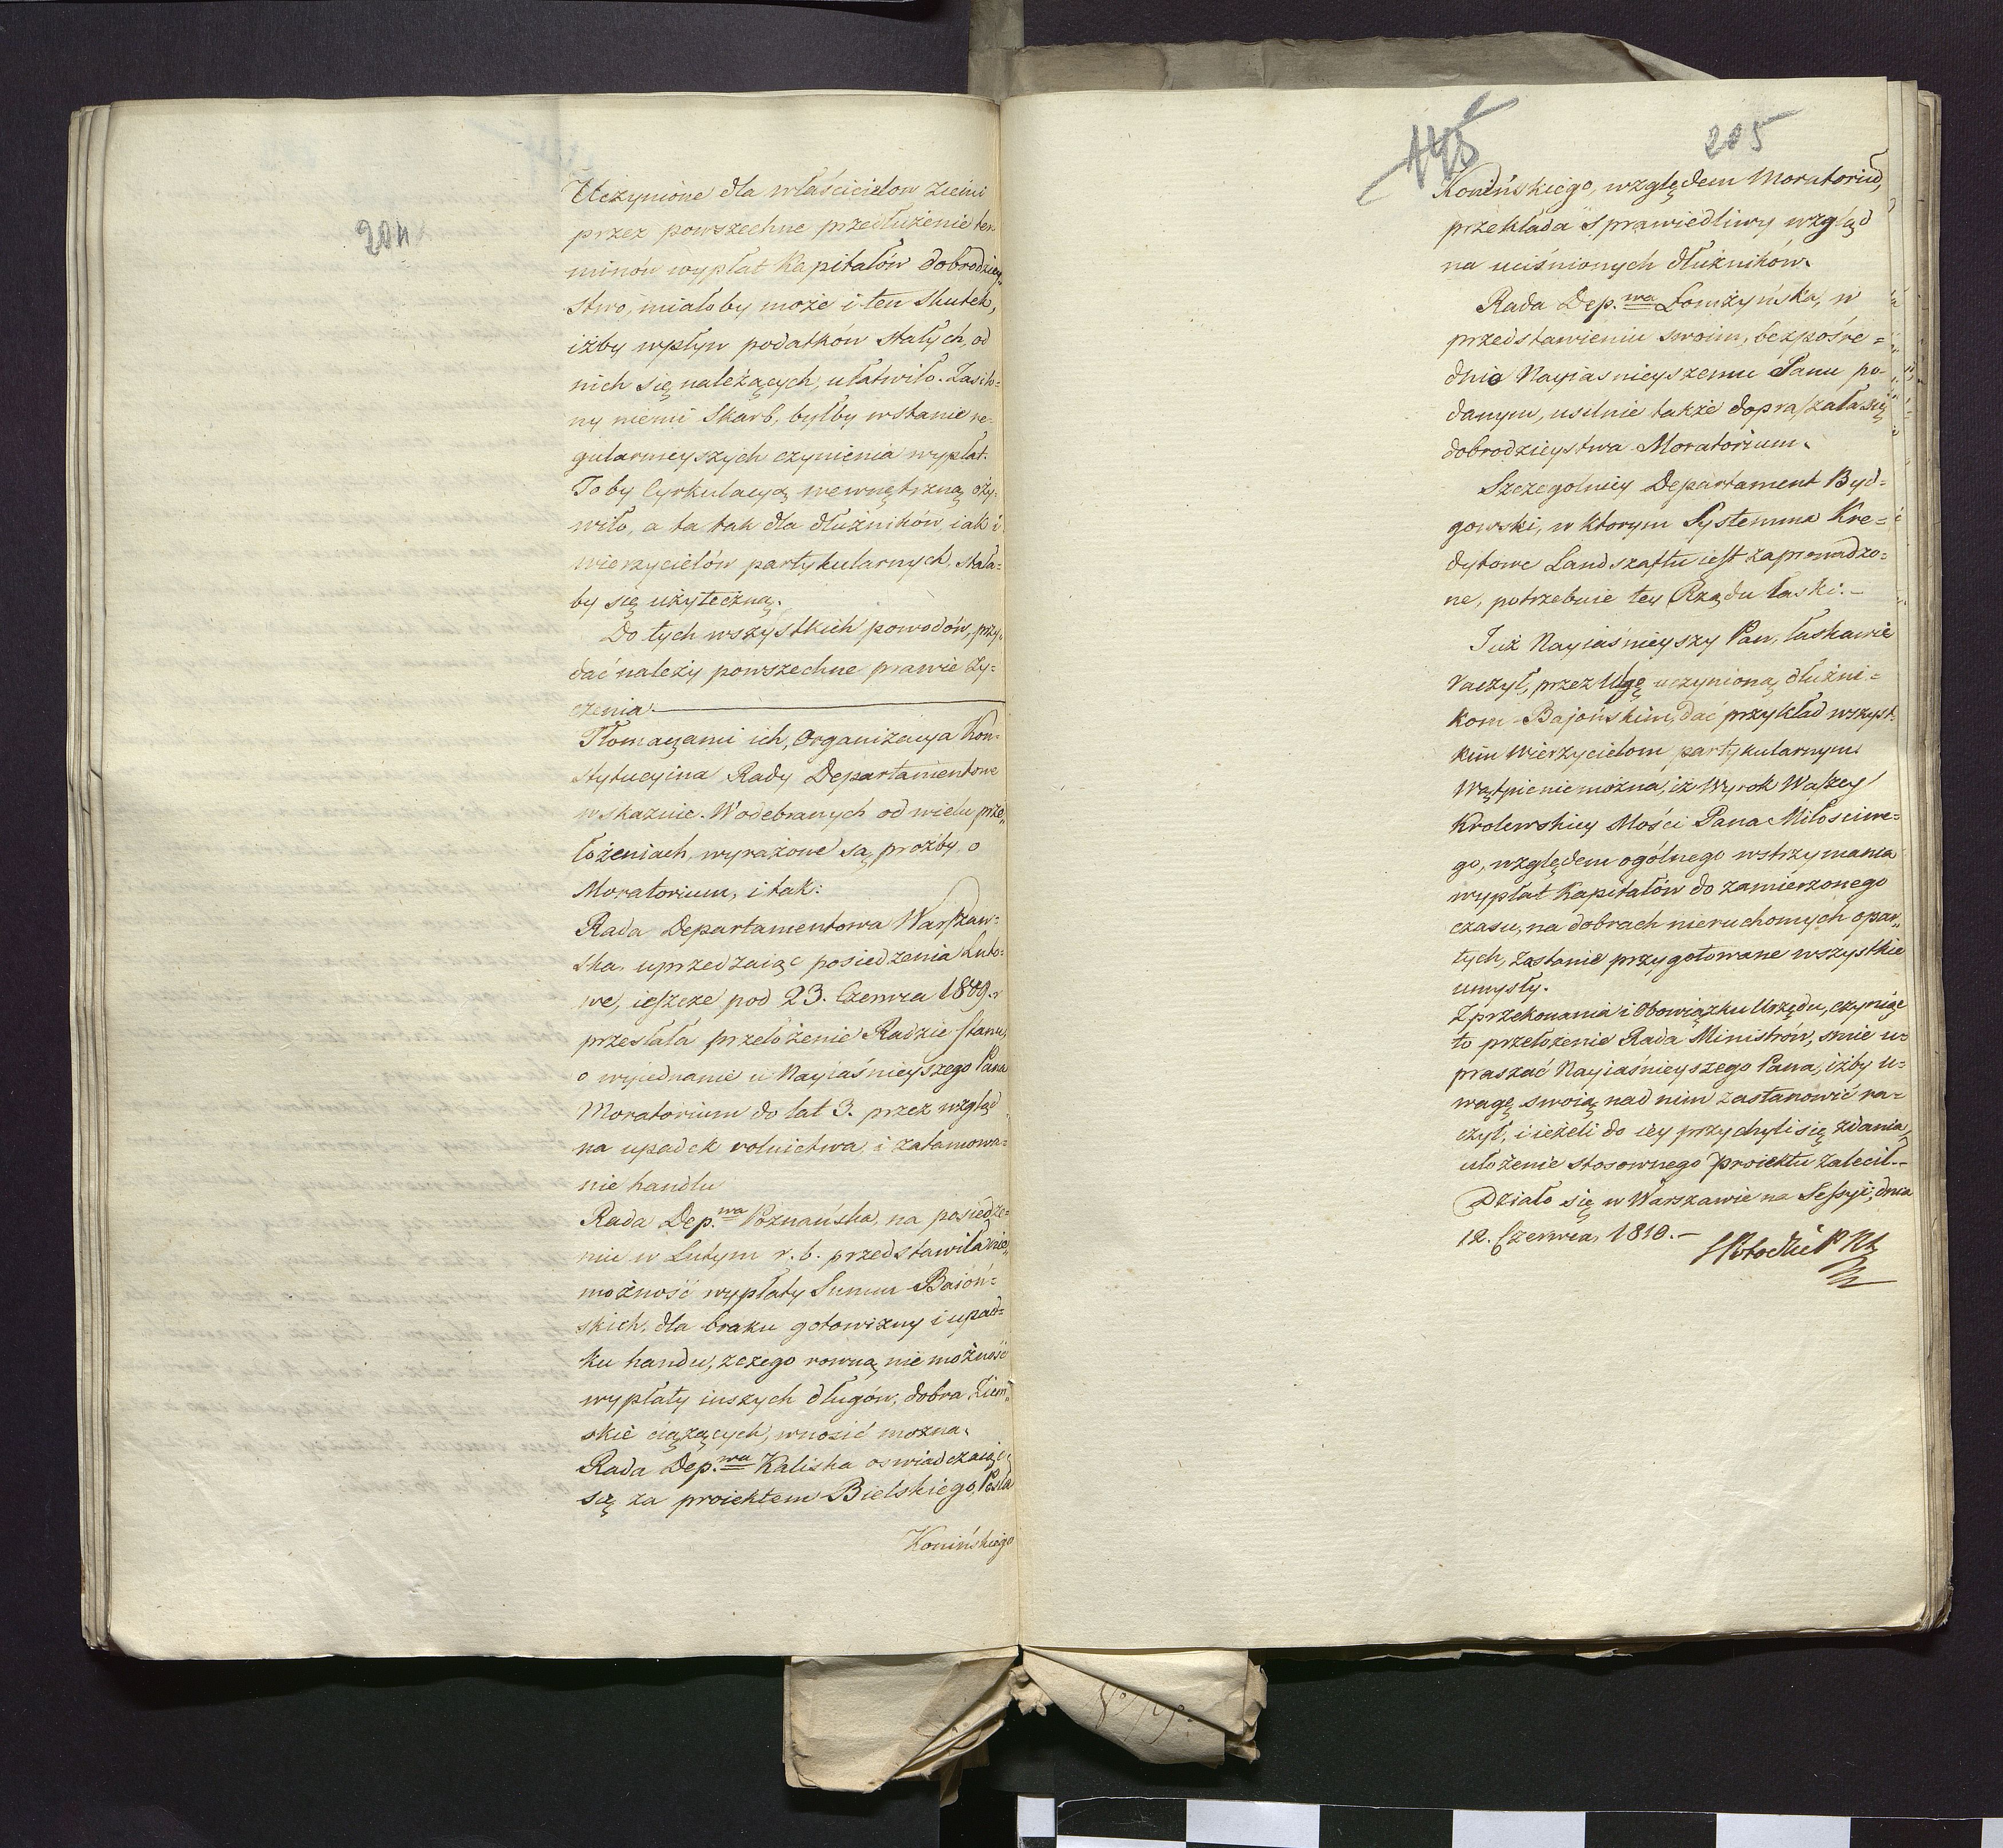 204
Uczynione dla właścicielow ziemi
przez powszechne przedłużenie ter-
minów wypłat Kapitałów dobrodziey„
stwo, miałoby może i ten Skutek,
iżby wpływ podatków Stałych, od
nich się należących, ułatwiło. Zasilo-
ny niemi Skarb, byłby wstanie re-
gularnieyszych czynienia wypłat.
To by Cyrkulacyą wewnętrzną oży-
wiło, a ta tak dla dłużników iak i
wierzycielów partykularnych, stała-
by się użyteczną.
Do tych wszystkich powodów, przy-
dać należy powszechne prawie ży-
czenia.
Tłomaczami ich, Organizacya Kon-
stytucyina Rady Departamentowe
wskazuie. W odebranych od wielu prze„
łożeniach, wyrażone są proźby o
Moratorium, i tak:
Rada Departamentowa Warszaw-
ska, uprzedzaiąc posiedzenia Luto-
we, ieszcze pod 23. Czerwca 1809. r
przesłała przełożenie Radzie Stanu,
o wyiednanie u Nayiaśnieyszego Pana
Moratorium do lat 3. przez wzgląd
na upadek rolnictwa, i zatamowa-
nie handlu
Rada Dep.wa Poznańska, na posiedze-
niu w Lutym r. b. przedstawiła nie„
możność wypłaty Summ Baioń-
skich, dla braku gotowizny i upad-
ku handu, zczego rowną nie możność
wypłaty inszych długów, dobra Ziem„
skie ciążących, wnosić można.
Rada Dep.wa Kaliska oswiadczaiąc
się za proiektem Bielskiego, Posła
Konińskiego
205
Konińskiego, względem Moratorium,
przekłada Sprawiedliwy wzgląd
na uciśnionych dłużników.
Rada Dep.wa Łomżyńska, w
przedstawieniu swoim, bezpośre-
dnio Nayiasnieyszemu Panu po-
danym, usilnie także dopraszała się
dobrodzieystwa Moratorium.
Szczegolniey Departament Byd-
gowski, w ktorym Systemma Kre-
dytowe Landszaftu iest zaprowadzo-
ne, potrzebuie tey Rządu łaski. -
Już Nayiaśnieyszy Pan, łaskawie
raczył, przez Ulgę uczynioną dłużni-
kom Bajońskim, dać przykład wszyst-
kim Wierzycielom partykularnym.
Wątpić nie można, iż Wyrok Waszey
Krolewskiey Mości Pana Miłosciwe-
go, względem ogólnego wstrzymania
wypłat Kapitałów do zamierzonego
czasu, na dobrach nieruchomych opar„
tych, zastanie przygotowane wszystkie
umysły.
Z przekonania i Obowiązku Urzędu, czyniąc
to przełożenie Rada Ministrów, śmie u-
praszać Nayiaśnieyszego Pana, iżby u-
wagę swoią nad nim zastanowić ra-
czył, i ieżeli do iey przychyli się zdania,
ułożenie stosownego Proiektu zalecił. -
Działo się w Warszawie na Sessyi, dnia
12. Czerwca 1810. -